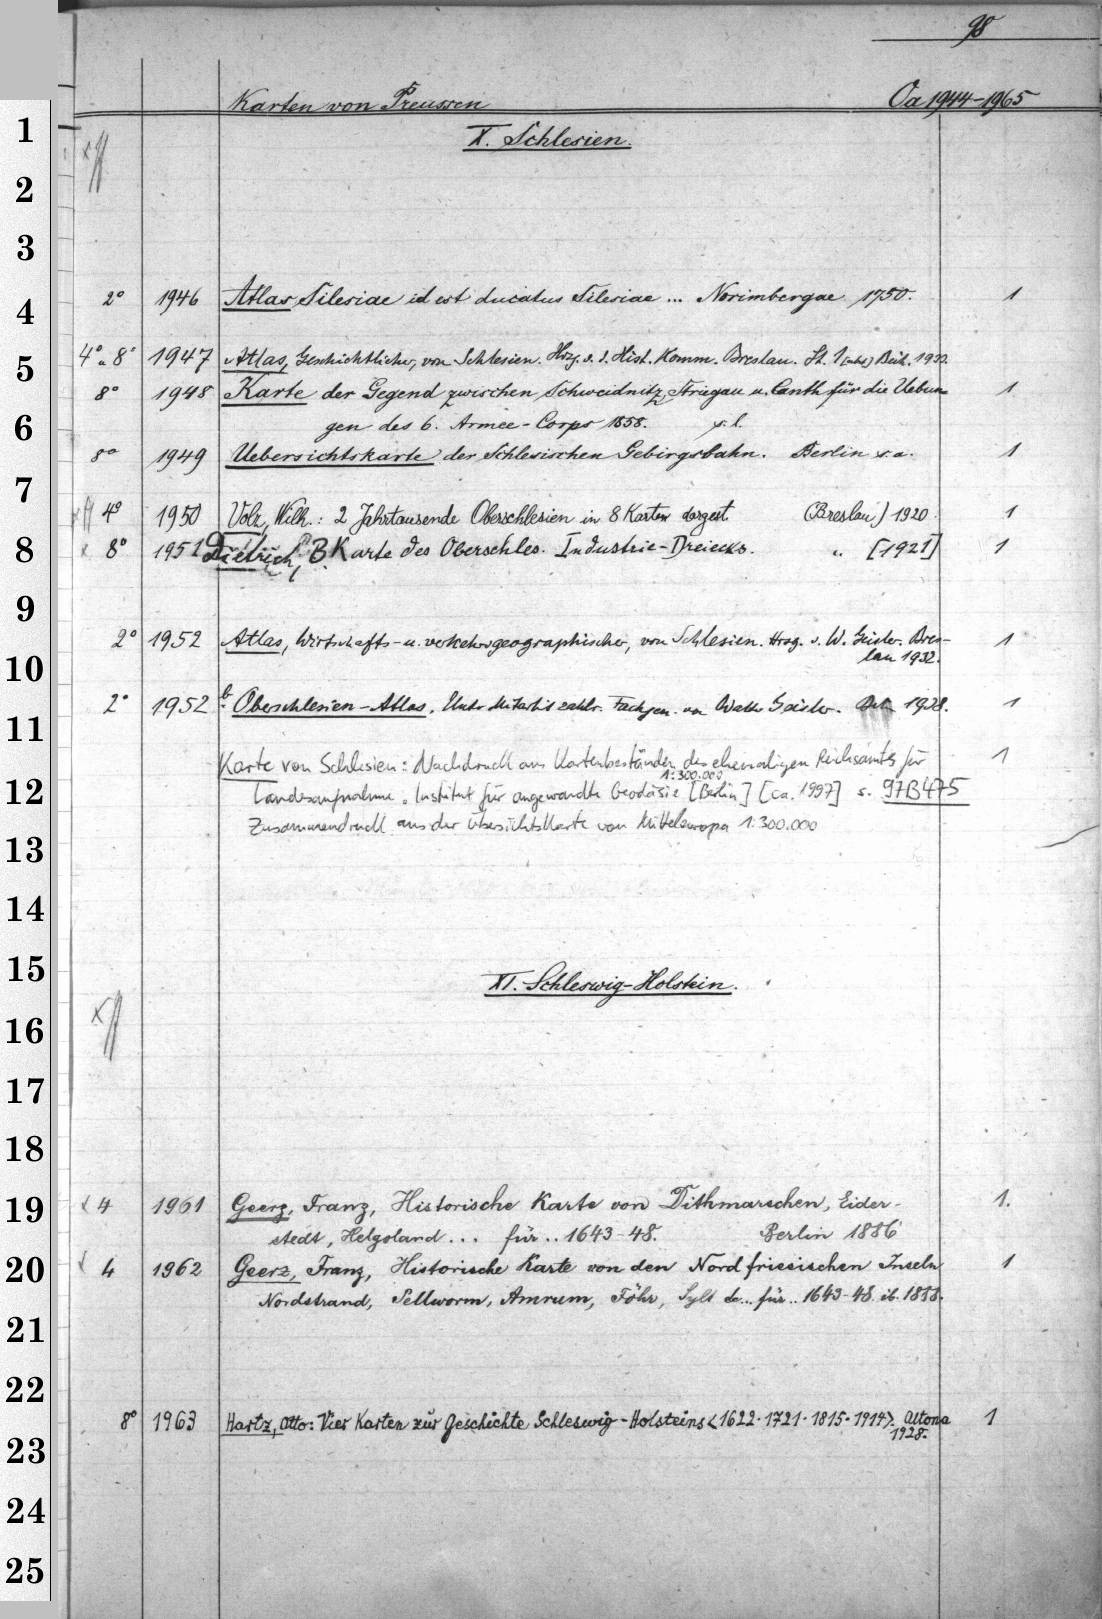 98
Karten von Preussen Oa 1944-1965
X. Schlesien.
2° 1946 Atlas Silesiae id est ducatus Silesiae ... Norimbergae 1750. 1
4° u 8° 1947 Atlas, Geschichtlicher, von Schlesien. Hrzg. v. d. Hist. Komm. Breslau. 1932.
8° 1948 Karte der Gegend zwischen Schweidnitz, Striegau u. Canth für die Uebun- 1
gen des 6. Armee-Corps 1858. s.l.
8° 1949 Uebersichtskarte der Schlesischen Gebirgsbahn. Berlin s.a. 1
4° 1950 Volz, Wilh.: 2 Jahrtausende Oberschlesien in 8 Karten dargest. (Breslau) 1920. 1
x 8° 1951 Dietrich, B. Karte des Oberschles. Industrie-Dreiecks. " [1921] 1
2° 1952 Atlas, Wirtschafts- u. verkehrsgeographischer, von Schlesien. Hrsg. v. W. Geisler. Bres- 1
lau 1932.
2° 1952 b. Oberschlesien-Atlas. Unter Mitarbeit zahlr. Fachgen. von Walter Geisler. 1938. 1
Karte von Schlesien: Nachdruck aus Kartenbeständen des ehemaligen Reichsamtes für 1
1:300.000
Landesaufnahme. Institut für angewandte Geodäsie [Berlin] [ca. 1997] s. 97B475
Zusammendruck aus der Übersichtskarte von Mitteleuropa 1:300.000
XI. Schleswig-Holstein.
x 4 1961 Geerz, Franz, Historische Karte von Dithmarschen, Eider- 1.
stedt, Helgoland ... für .. 1643-48. Berlin 1886
x 4 1962 Geerz, Franz, Historische Karte von den Nordfriesischen Inseln 1
Nordstrand, Pellworm, Amrum, Föhr, Sylt etc... für .. 1643-48. ib. 1888.
8° 1963 Hartz, Otto: Vier Karten zur Geschichte Schleswig-Holsteins <1622·1721·1815·1914>. Altona 1
1928.
1
2
3
4
5
6
7
8
9
10
11
12
13
14
15
16
17
18
19
20
21
22
23
24
25